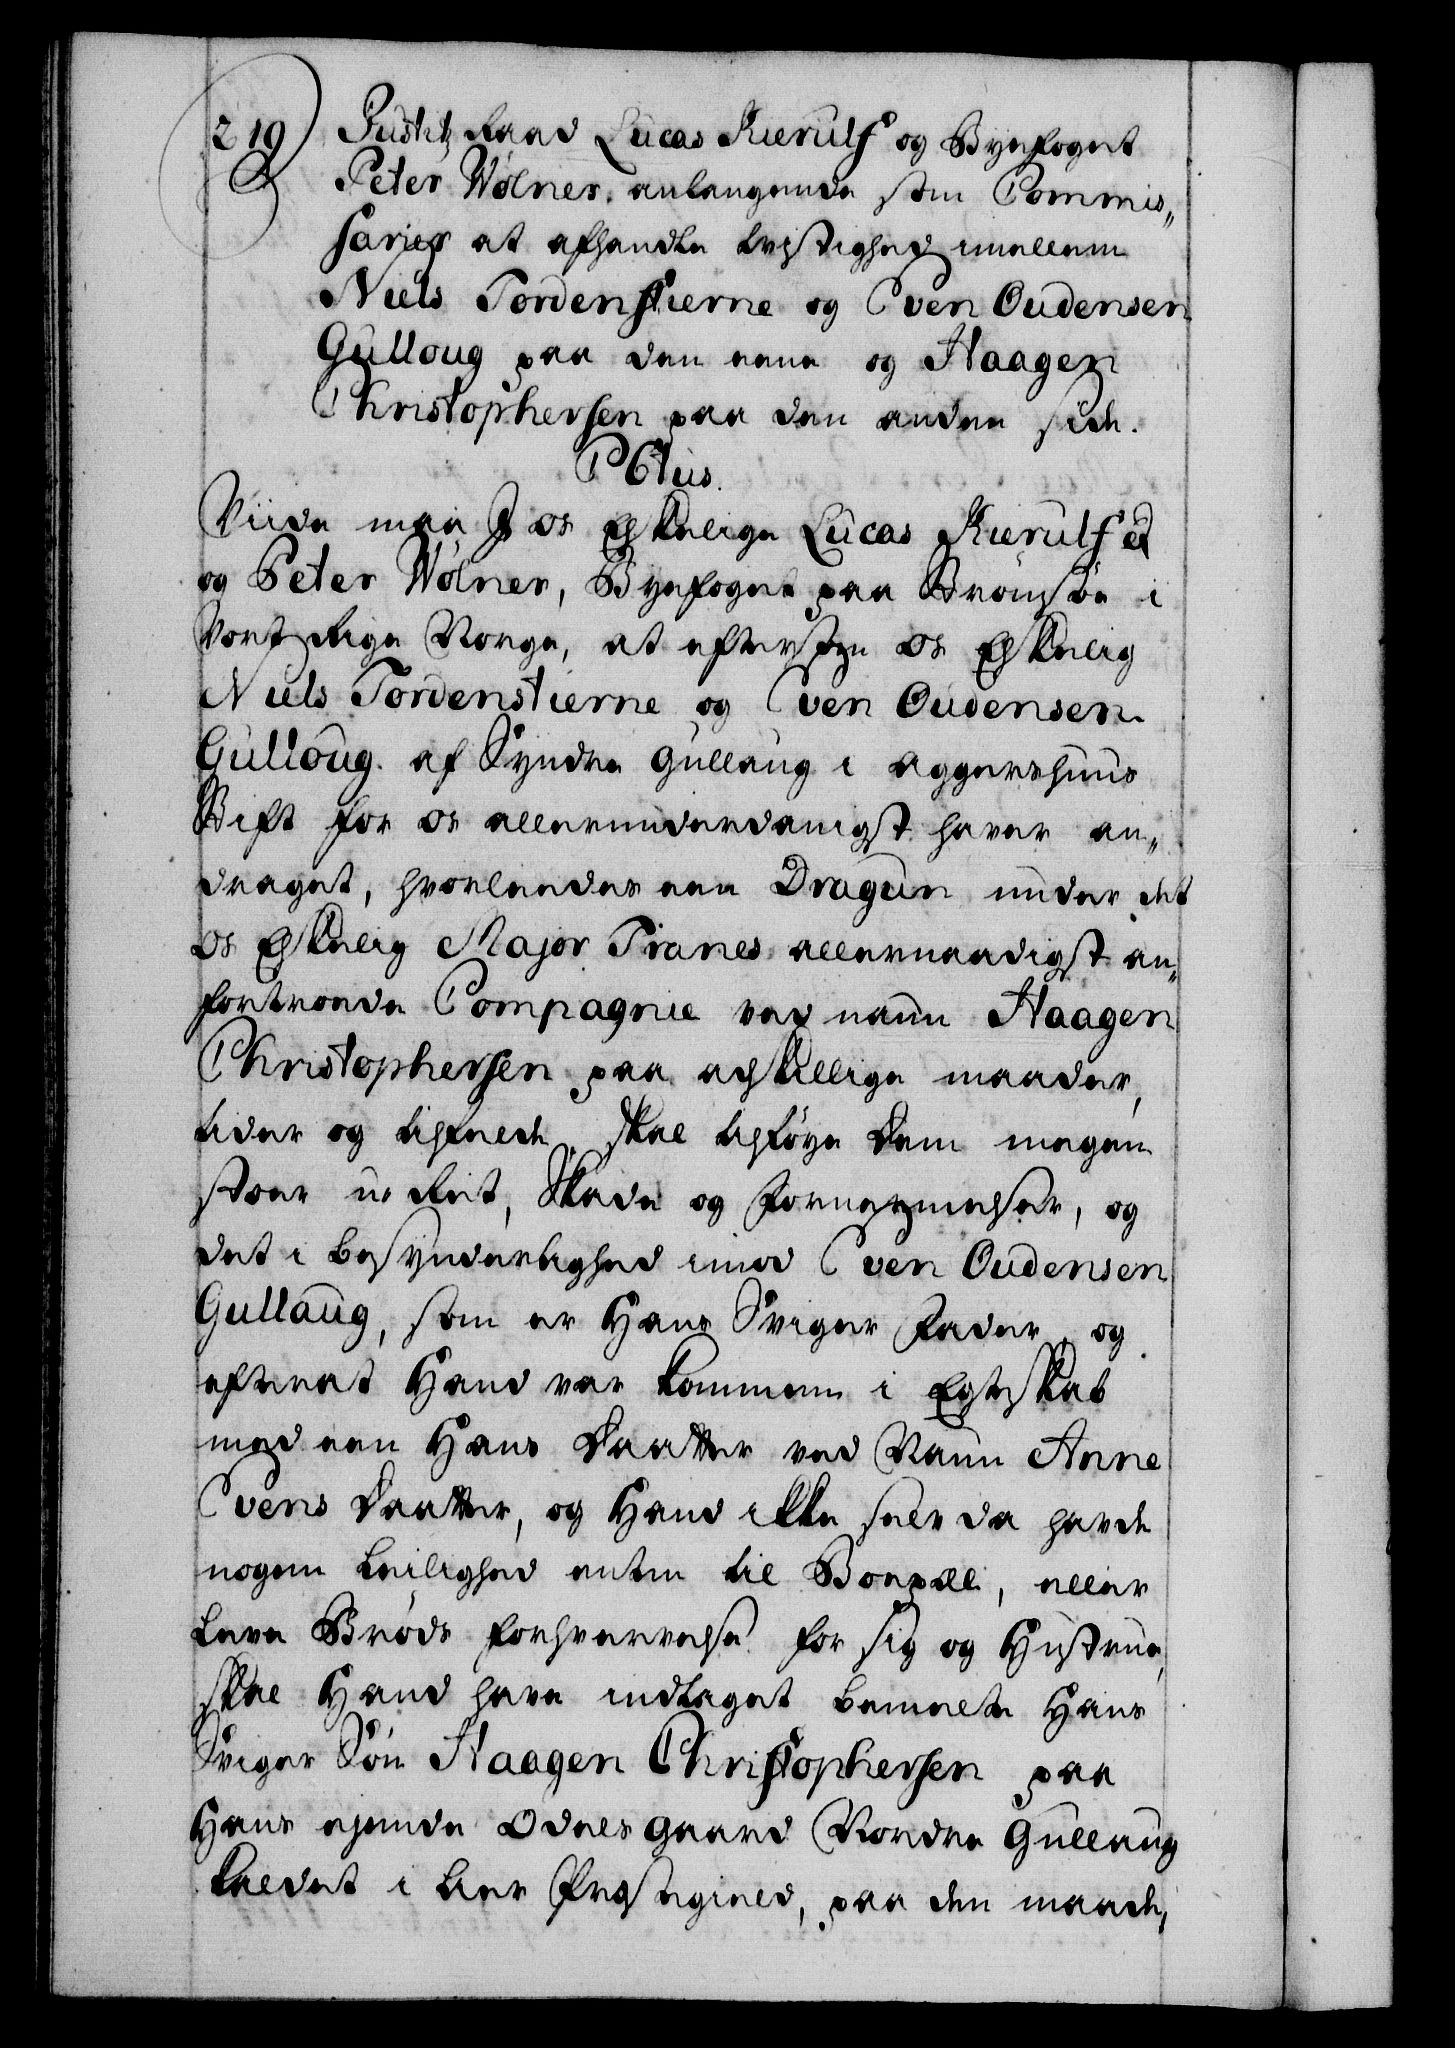 219 Justitz Raad Lucas Kierulf og Byefoget
Peter Wølner, anlangende som Commis„
sarier at afhandle tvistighed imellem
Niels Tordenstierne og Sven Oudensen
Gulloug paa den eene og Haagen
Christophersen paa den anden side.
C 6tus.
Viide maa I os Elskelige Lucas Kierulf
og Peter Wølner, Byefoget paa Bragnæs i
Vort Rige Norge, at eftersom os Elskelig
Niels Tordenstierne og Sven Oudensen
Gulloug af Syndre Gullaug i Aggershuus
Stift for os allerunderdanigst haver an„
draget, hvorleedes een Dragun under det
os Elskelig Major Tranes allernaadigst an„
fortroede Compagnie ved naun Haagen
Christophersen paa adskillige maader,
tider og tilfælde, skal tilføye Dem megen
stoer uRet, Skade og Fornermelser, og
det i besynderlighed imod Sven Oudensen
Gullaug, som er Hans Sviger Fader, og
efterat Hand var kommen i Egteskab
med een Hans Daatter ved Naun Anne
Svens Daatter, og Hand ikke selv da havde
nogen leilighed enten til Boepæll, eller
leve Brøds forhvervelse for sig og Hustrue,
skal Hand have indtaget bemelte Hans
Sviger Søn Haagen Christophersen paa
Hans ejende Odels gaard Nordre Gullaug
kaldet i Lier Præstegield, paa den maade,